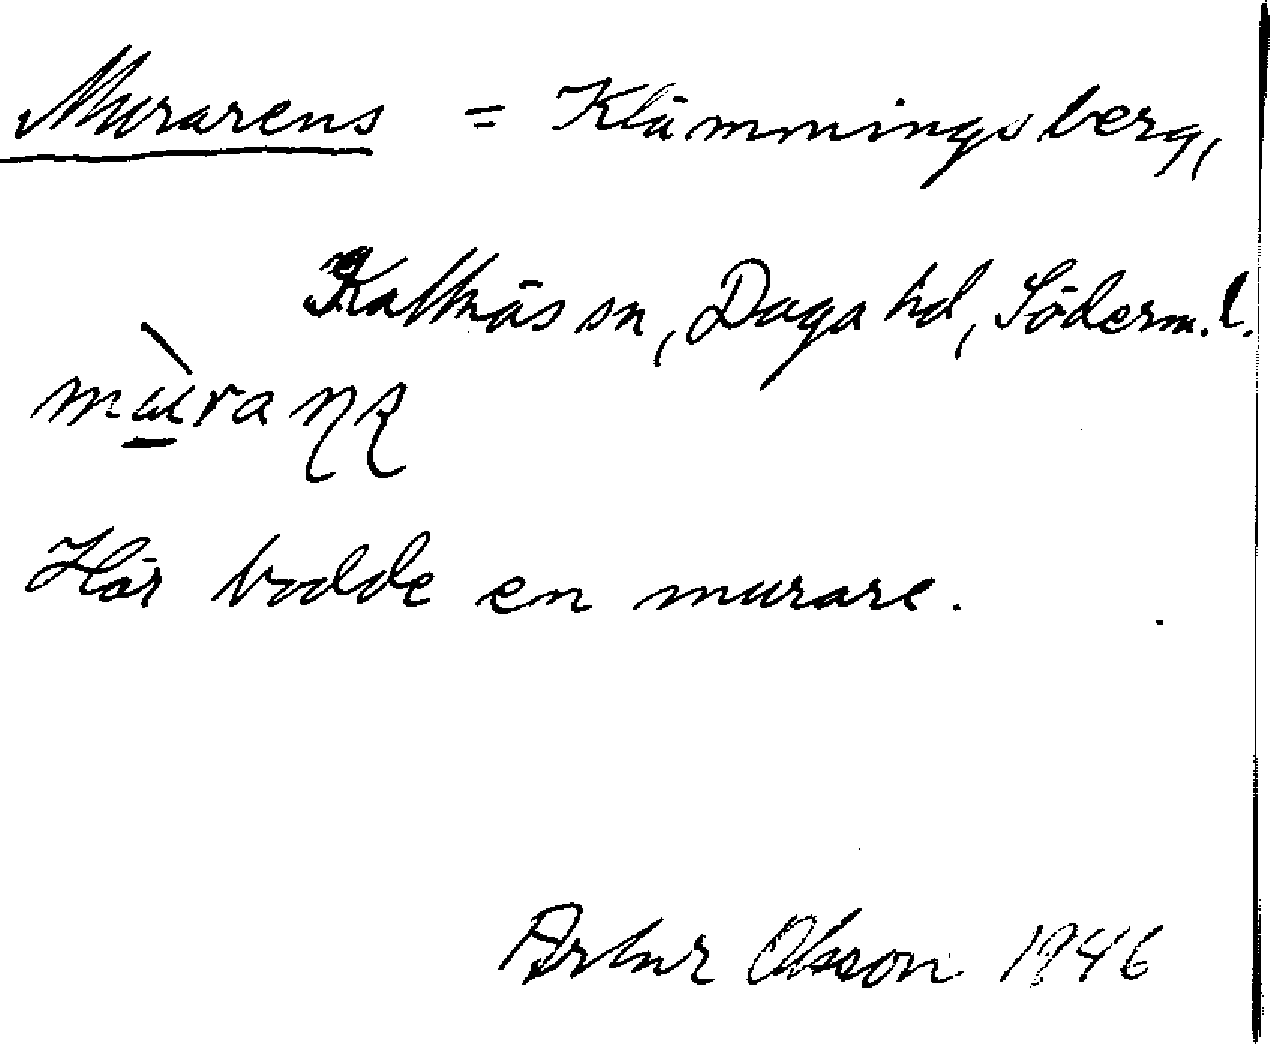 Murarens = Klämmingsberg,
Kattnäs sn, Daga hd, Söderm. l.
Här bodde en murare.
Artur Olsson 1946